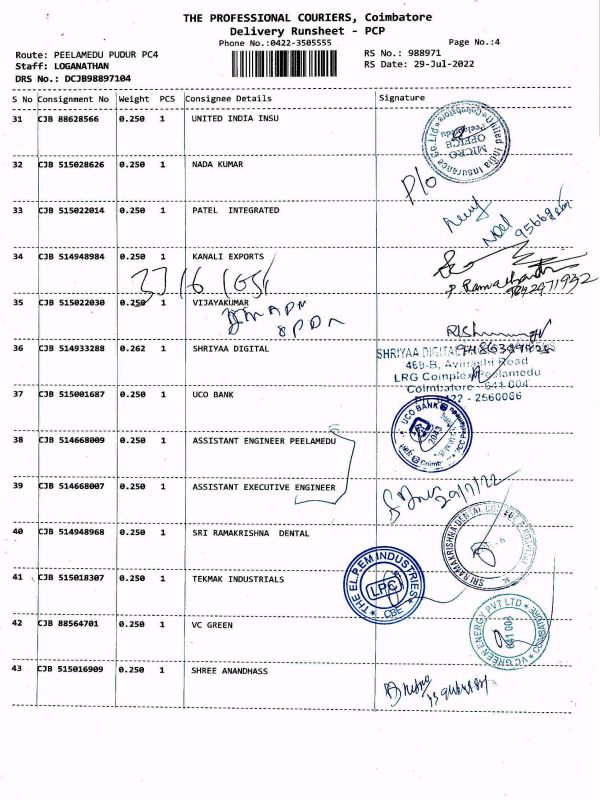 THE PROFESSIONAL COURIERS, Coimbatore
Delivery Runsheet - PCP
Phone No.:0422-3505555 Page No.:4
Route: PEELAMEDU PUDUR PC4 RS No.: 988971
Staff: LOGANATHAN RS Date: 29-Jul-2022
DRS No.: DCJB98897104
S No Consignment No Weight PCS Consignee Details Signature
31 CJB 88628566 0.250 1 UNITED INDIA INSU
United India Insurance Co.Ltd
MICRO OFFICE
32 CJB 515028626 0.250 1 NADA KUMAR
P/o
33 CJB 515022014 0.250 1 PATEL INTEGRATED
34 CJB 514948984 0.250 1 KANALI EXPORTS
35 CJB 515022030 0.250 1 VIJAYAKUMAR
36 CJB 514933288 0.262 1 SHRIYAA DIGITAL
SHRIYAA DIGITAL
469-B, Avinashi Road
LRG Complex Peelamedu
Coimbatore - 641 004
0422 - 2560066
37 CJB 515001687 0.250 1 UCO BANK
UCO BANK
2043
38 CJB 514668009 0.250 1 ASSISTANT ENGINEER PEELAMEDU
39 CJB 514668007 0.250 1 ASSISTANT EXECUTIVE ENGINEER
29/7/22
40 CJB 514948968 0.250 1 SRI RAMAKRISHNA DENTAL
SRI RAMAKRISHNA DENTAL COLLEGE
41 CJB 515018307 0.250 1 TEKMAK INDUSTRIALS
THE EL.P.EM INDUSTRIES
LPC
CBE
42 CJB 88564701 0.250 1 VC GREEN
VC GREEN ENERGY PVT LTD
641 004
43 CJB 515016909 0.250 1 SHREE ANANDHASS